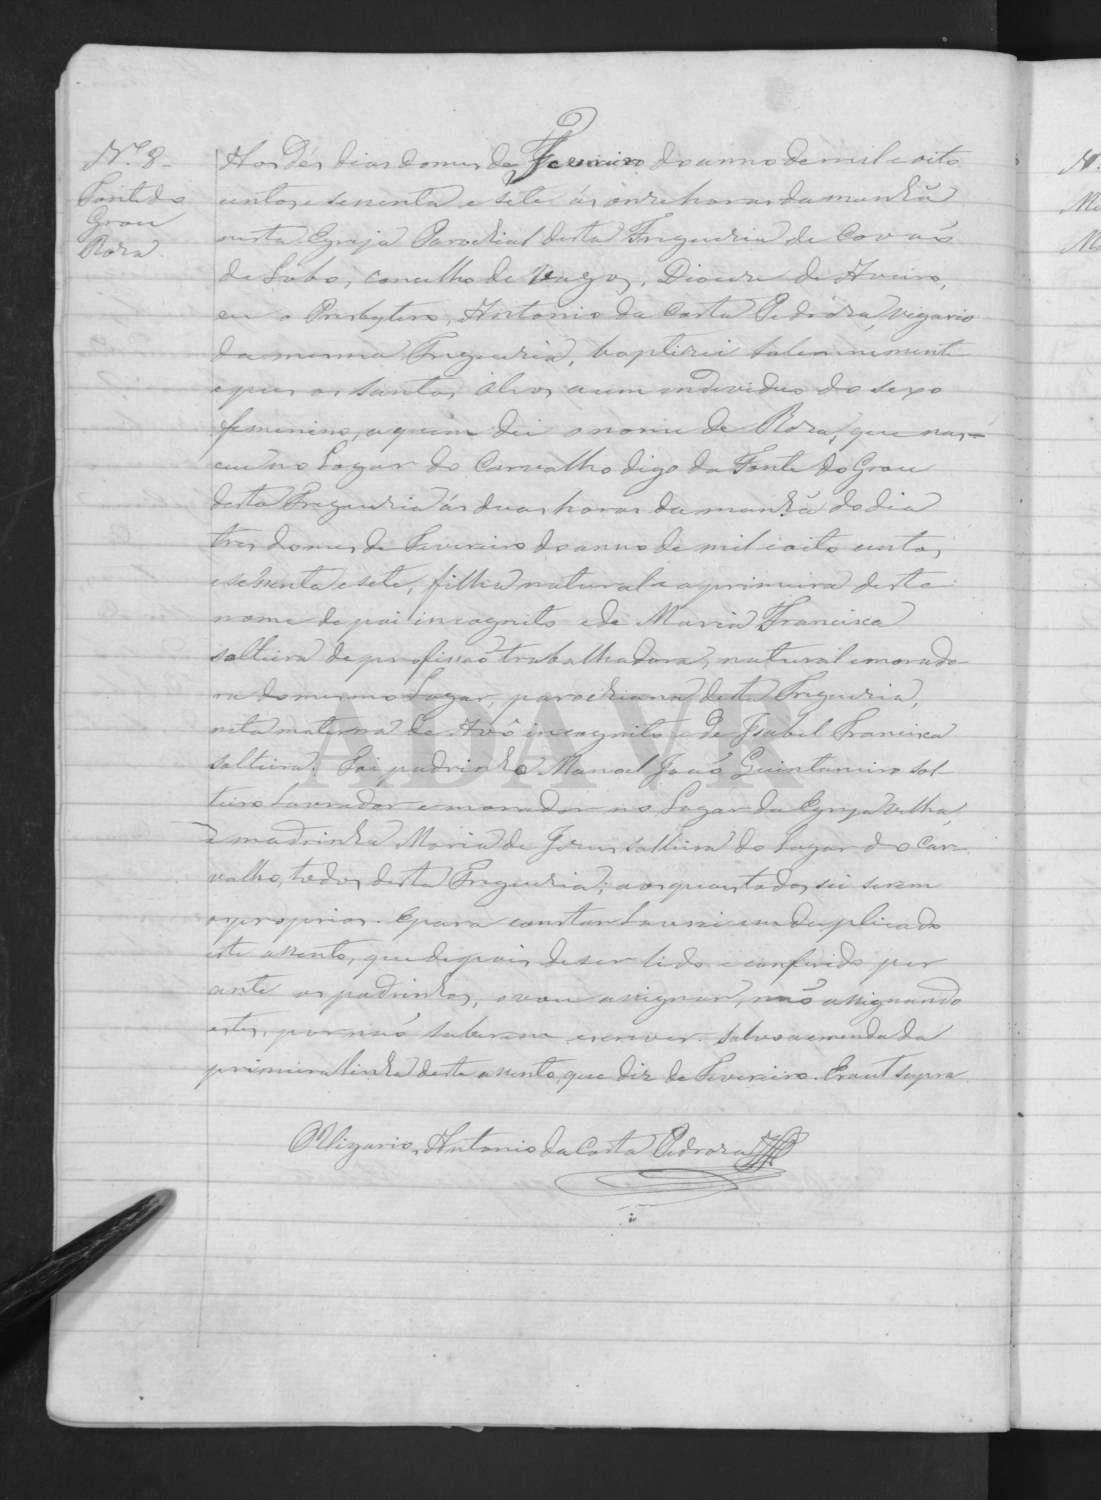 Nº 8
Fonte do
Grou
Roza
Aos Dés dias do mes de Fevereiro do anno de mil e oito
centos e sessenta e séte ás onze horas da manhã
nesta Egreja Parochial desta Freguezia de Covaõ
do Lobo, concelho de Vagos, Diocese de Aveiro,
eu o Presbytero, Antonio da Costa Pedróza, Vigario
da mesma Freguezia, baptizei solemnemente
e pus os santos óleos a um individuo do sexo
femenino, a quem dei o nome de Roza, que nas-
ceu no Logar do Carvalho digo da Fonte do Grou
desta Freguezia ás duas horas da manhã do dia
tres do mes de Fevereiro do anno de mil e oito centos
e sessenta e sete, filha natural e a primeira deste
nome de pai incognito e de Maria Francisca
solteira de profissaõ trabalhadora, natural e morado-
ra do mesmo Logar, parochiana desta Freguezia,
neta materna de Avô incognito e de Isabel Francisca
solteira. Foi padrinho Manoel Joaõ Guintaneiro sol-
teiro Lavrador e morador no Logar da Egreja Velha,
e madrinha Maria de Jezus solteira do Logar do Car-
valho, todos desta Freguezia; aos quaes todos sei serem
os proprios. E para constar lavrei em duplicado
este assento, que depois de ser lido e conferido per
ante os padrinhos, o vou assignar, naõ assignando
estes, por naõ saberem escrever. Salvo a emenda da
primeira linha deste assento, que diz de Fevereiro. Era ut supra
O Vigario, Antonio da Costa Pedroza
ADAVR